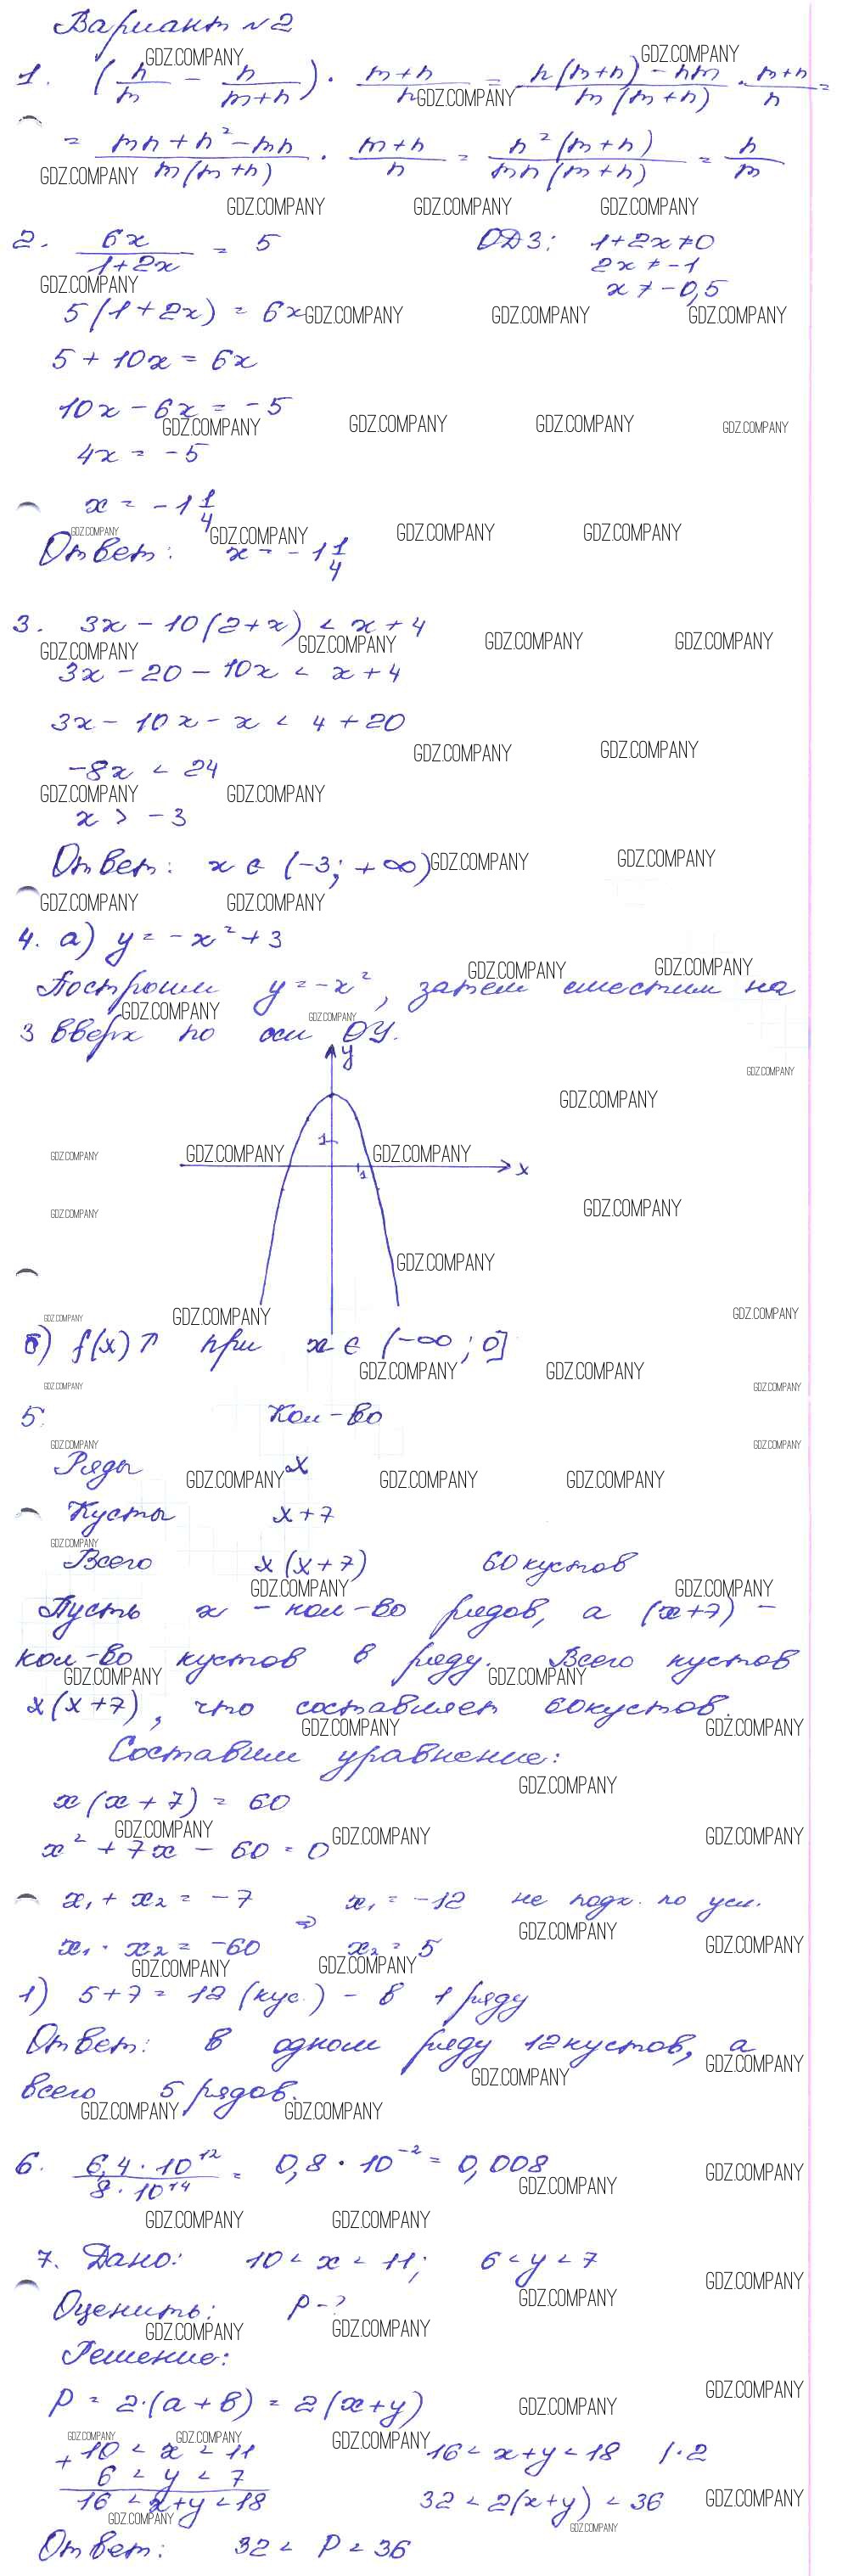 Вариант №2
1. (n/m - n/(m+n)) · (m+n)/n = (n(m+n) - nm)/(m(m+n)) · (m+n)/n =
= (mn + n² - mn)/(m(m+n)) · (m+n)/n = n²(m+n)/(mn(m+n)) = n/m
2. 6x/(1+2x) = 5 ОДЗ: 1+2x≠0
2x ≠ -1
x ≠ -0,5
5(1+2x) = 6x
5 + 10x = 6x
10x - 6x = -5
4x = -5
x = -1 1/4
Ответ: x = -1 1/4
3. 3x - 10(2+x) < x + 4
3x - 20 - 10x < x + 4
3x - 10x - x < 4 + 20
-8x < 24
x > -3
Ответ: x ∈ (-3; +∞)
4. а) y = -x² + 3
Построим y = -x², затем сместим на
3 вверх по оси OY.
y
1
1
x
б) f(x)↑ при x ∈ (-∞; 0]
5. Кол-во
Ряды x
Кусты x+7
Всего x(x+7) 60 кустов
Пусть x - кол-во рядов, а (x+7) -
кол-во кустов в ряду. Всего кустов
x(x+7), что составляет 60 кустов.
Составим уравнение:
x(x+7) = 60
x² + 7x - 60 = 0
x₁ + x₂ = -7 ⇒ x₁ = -12 не подх. по усл.
x₁ · x₂ = -60 x₂ = 5
1) 5+7 = 12 (кус.) - в 1 ряду
Ответ: в одном ряду 12 кустов, а
всего 5 рядов.
6. (6,4 · 10¹²)/(8 · 10¹⁴) = 0,8 · 10⁻² = 0,008
7. Дано: 10 < x < 11; 6 < y < 7
Оценить: P - ?
Решение:
P = 2·(a+b) = 2(x+y)
+ 10 < x < 11 16 < x+y < 18 |·2
6 < y < 7
16 < x+y < 18 32 < 2(x+y) < 36
Ответ: 32 < P < 36
GDZ.COMPANY